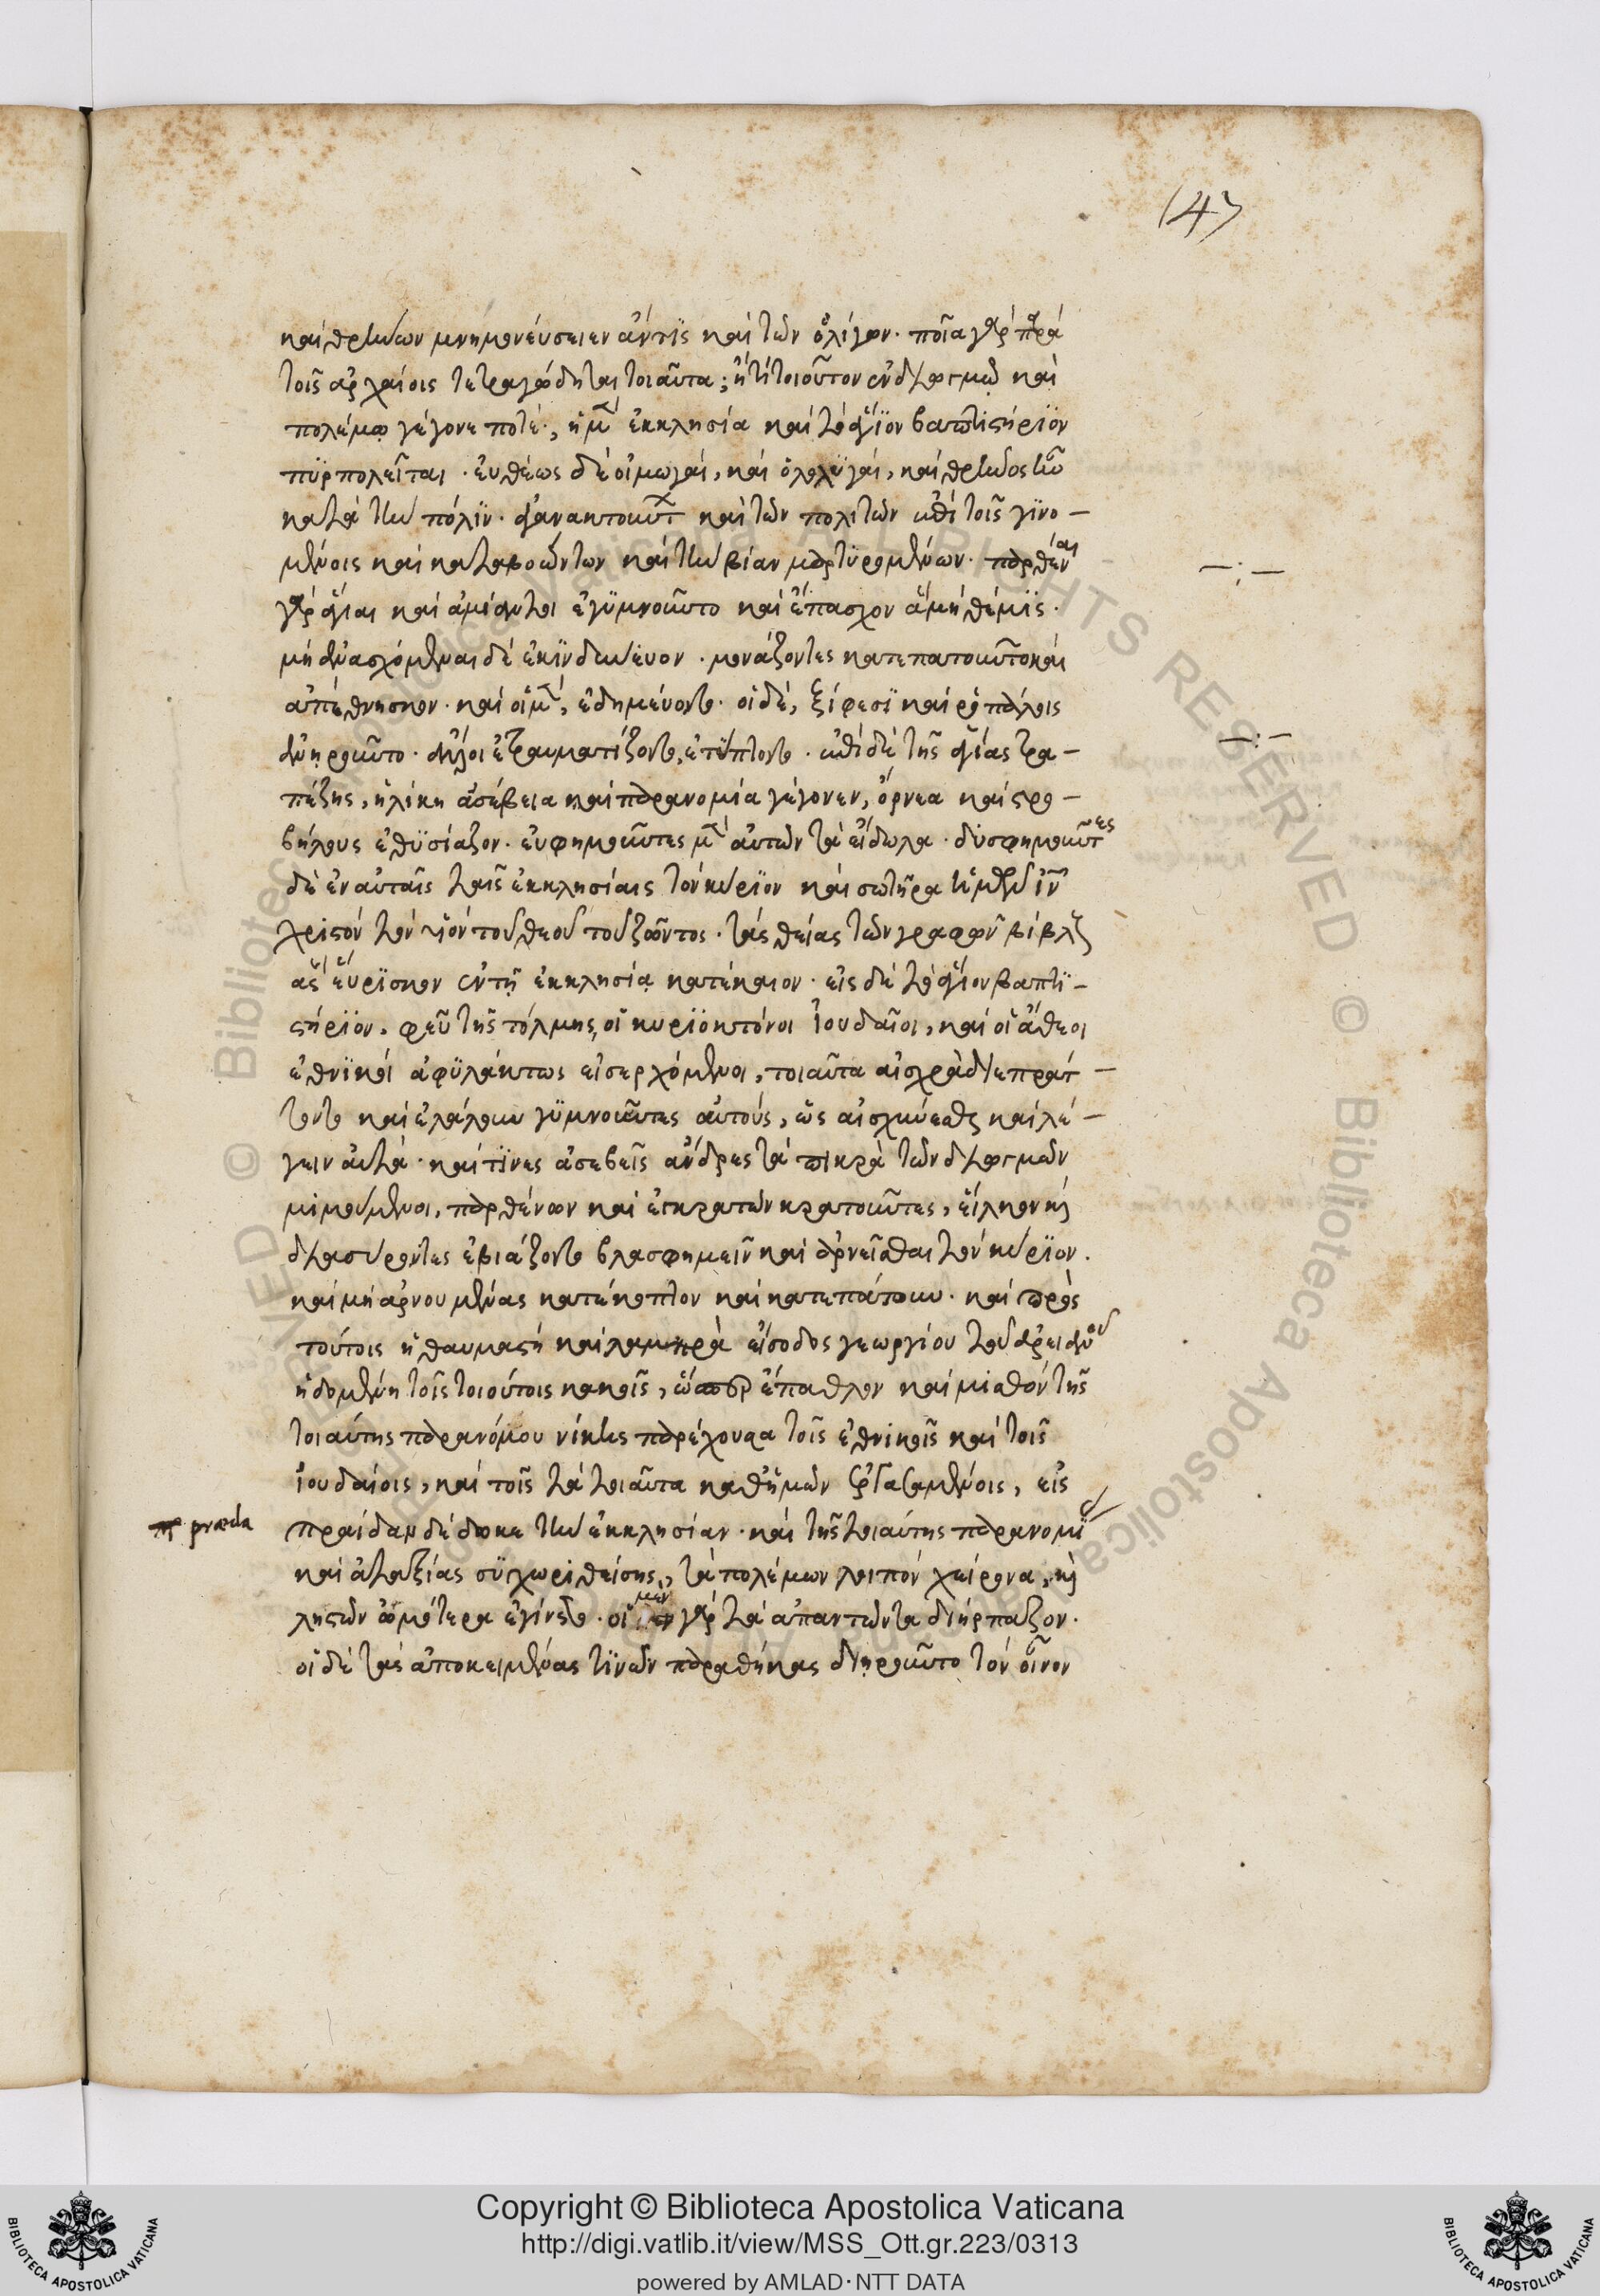 147
καὶ θρήνων μνημονεύσειεν ἄν τϊς καὶ τῶν ὀλίγων· ποῖα γὰρ παρὰ
τοῖς ἀρχαίοις τετραγώδηται τοιαῦτα; ἢ τί τοιοῦτον ἐν διωγμῷ καὶ
πολέμῳ γέγονε ποτέ·, ἡ μὲν ἐκκλησία καὶ τὸ ἅγϊον βαπτιστήρϊον
πϋρπολεῖται· ἐυθέως δὲ οἰμωγαὶ, καὶ ὀλολϋγαὶ, καὶ θρῆνος ἦν
κατὰ τὴν πόλϊν· ἀγανακτούντων καὶ τῶν πολιτῶν ἐπὶ τοῖς γϊνο-
μένοις καὶ καταβοώντων καὶ τὴν βίαν μαρτϋρομένων· παρθέναι
γὰρ ἅγιαι καὶ ἀμίαντοι ἐγϋμνοῦντο καὶ ἔπασχον ἃ μὴ θέμϊς·
μὴ ἀνασχόμεναι δὲ ἐκϊνδυνέυον· μονάζοντες κατεπατοῦντο καὶ
ἀπέθνησκον· καὶ οἱ μὲν, ἐδημέυοντο· οἱ δὲ, ξίφεσϊ καὶ ῥοπάλοις
ἀνῃροῦντο· ἄλλοι ἐτραυματίζοντο, ἐτϋπτοντο· ἐπὶ δὲ τῆς ἁγίας τρα-
πέζης, ἡλίκη ἀσέβεια καὶ παρανομία γέγονεν, ὄρνεα καὶ στρο-
βήλους ἐθϋσίαζον· ἐυφημοῦντες μὲν αὐτῶν τὰ εἴδωλα· δϋσφημοῦντες
δὲ ἐν αὐταῖς ταῖς ἐκκλησίαις τὸν κύρϊον καὶ σωτῆρα ἡμῶν ἰν
χριστὸν τὸν υἱὸν τοῦ θεοῦ τοῦ ζῶντος· τὰς θείας τῶν γραφῶν βίβλους
ἃς ἕυρϊσκον ἐν τῇ ἐκκλησίᾳ κατέκαιον· εἰς δὲ τὸ ἅγιον βαπτϊ-
στήρϊον, φεῦ τῆς τόλμης, οἱ κυρϊοκτόνοι ἰουδαῖοι, καὶ οἱ ἄθεοι
ἐθνϊκοὶ ἀφϋλάκτως εἰσερχόμενοι, τοιαῦτα αἰσχρὰ διεπράτ-
τοντο καὶ ἐλάλουν γϋμνοῦντες αὐτοὺς, ὡς αἰσχύνεσθαι καὶ λέ-
γειν ἀυτὰ· καὶ τϊνες ἀσεβεῖς ἄνδρες τὰ πικρὰ τῶν διωγμῶν
μιμούμενοι, παρθένων καὶ ἐγκρατῶν κρατοῦντες, εἵλκον καὶ
διασύροντες ἐβιάζοντο βλασφημεῖν καὶ ἀρνεῖσθαι τὸν κύρϊον.
καὶ μὴ ἀρνουμένας κατέκοπτον καὶ κατεπάτουν· καὶ πρὸς
τούτοις ἡ θαυμαστὴ καὶ λαμπρὰ εἴσοδος γεωργίου τοῦ ἀρειανοῦ
ἡδομένη τοῖς τοιούτοις κακοῖς, ὥσπερ ἔπαθλον καὶ μισθὸν τῆς
τοιαύτης παρανόμου νίκης παρέχουσα τοῖς ἐθνικοῖς καὶ τοῖς
ἰουδαίοις, καὶ τοῖς τὰ τοιαῦτα καθ ἡμῶν ἐργασαμένοις, εἰς
πραίδαν δέδωκε τὴν ἐκκλησίαν· καὶ τῆς τοιαύτης παρανομϊας
præda
καὶ ἀταξίας σϋγχωριθείσης, τὰ πολέμων λοιπὸν χείρονα, καὶ
ληστῶν ὠμότερα ἐγίνετο· οἱ μὲν γὰρ τὰ ἀπαντῶντα διήρπαζον·
οἱ δὲ τὰς ἀποκειμένας τϊνῶν παραθήκας διῃροῦντο τὸν οἶνον
Copyright © Biblioteca Apostolica Vaticana
http://digi.vatlib.it/view/MSS_Ott.gr.223/0313
powered by AMLAD·NTT DATA
BIBLIOTECA APOSTOLICA VATICANA
BIBLIOTECA APOSTOLICA VATICANA